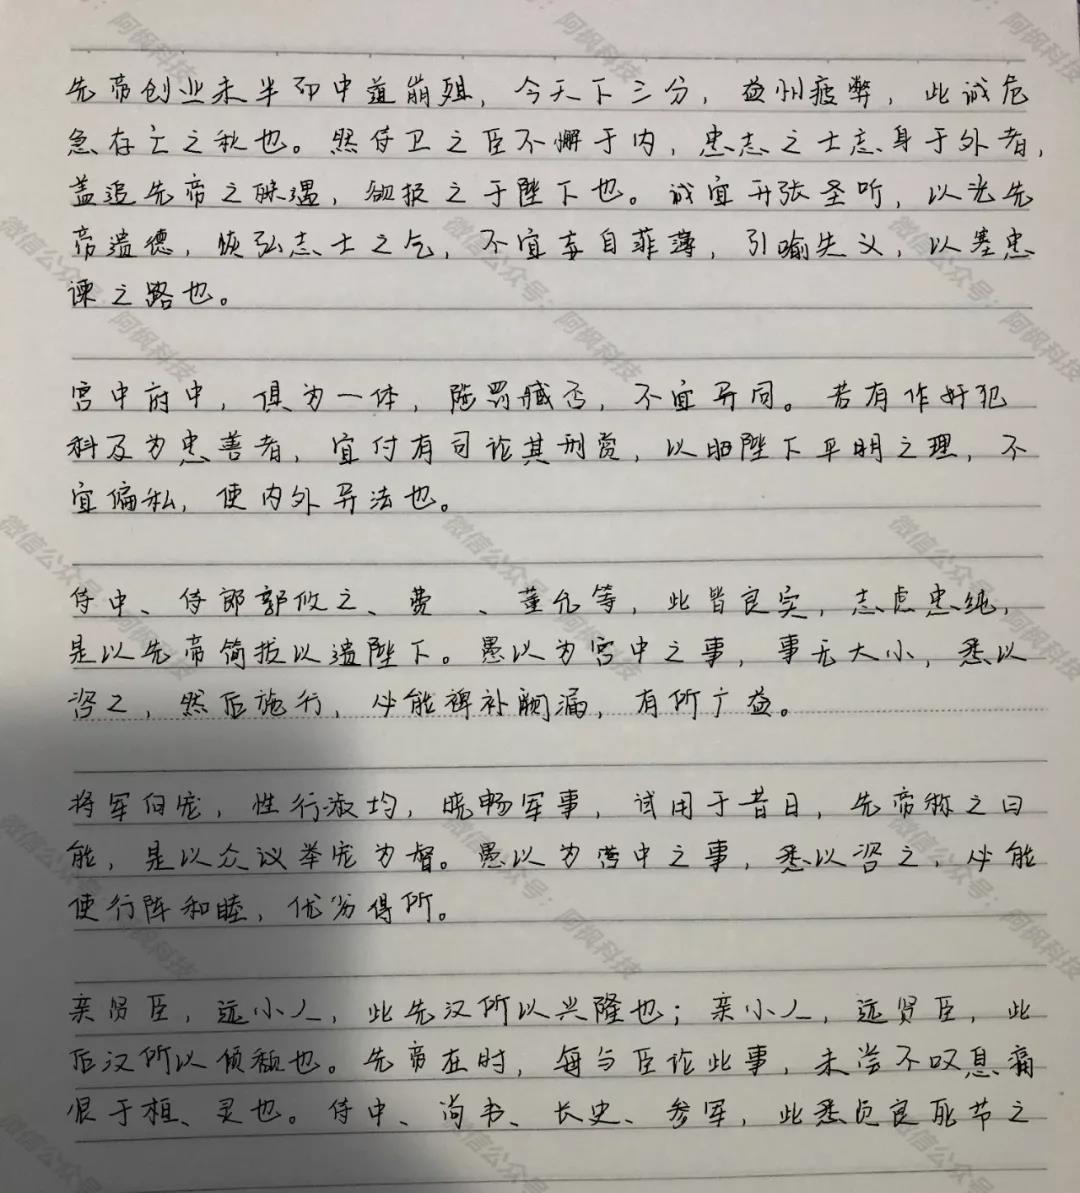 先帝创业未半而中道崩殂，今天下三分，益州疲弊，此诚危
急存亡之秋也。然侍卫之臣不懈于内，忠志之士志身于外者，
盖追先帝之殊遇，欲报之于陛下也。诚宜开张圣听，以光先
帝遗德，恢弘志士之气，不宜妄自菲薄，引喻失义，以塞忠
谏之路也。
宫中府中，俱为一体，陟罚臧否，不宜异同。若有作奸犯
科及为忠善者，宜付有司论其刑赏，以昭陛下平明之理，不
宜偏私，使内外异法也。
侍中、侍郎郭攸之、费 、董允等，此皆良实，志虑忠纯，
是以先帝简拔以遗陛下。愚以为宫中之事，事无大小，悉以
咨之，然后施行，必能裨补阙漏，有所广益。
将军向宠，性行淑均，晓畅军事，试用于昔日，先帝称之曰
能，是以众议举宠为督。愚以为营中之事，悉以咨之，必能
使行阵和睦，优劣得所。
亲贤臣，远小人，此先汉所以兴隆也；亲小人，远贤臣，此
后汉所以倾颓也。先帝在时，每与臣论此事，未尝不叹息痛
恨于桓、灵也。侍中、尚书、长史、参军，此悉贞良死节之
微信公众号：阿枫科技